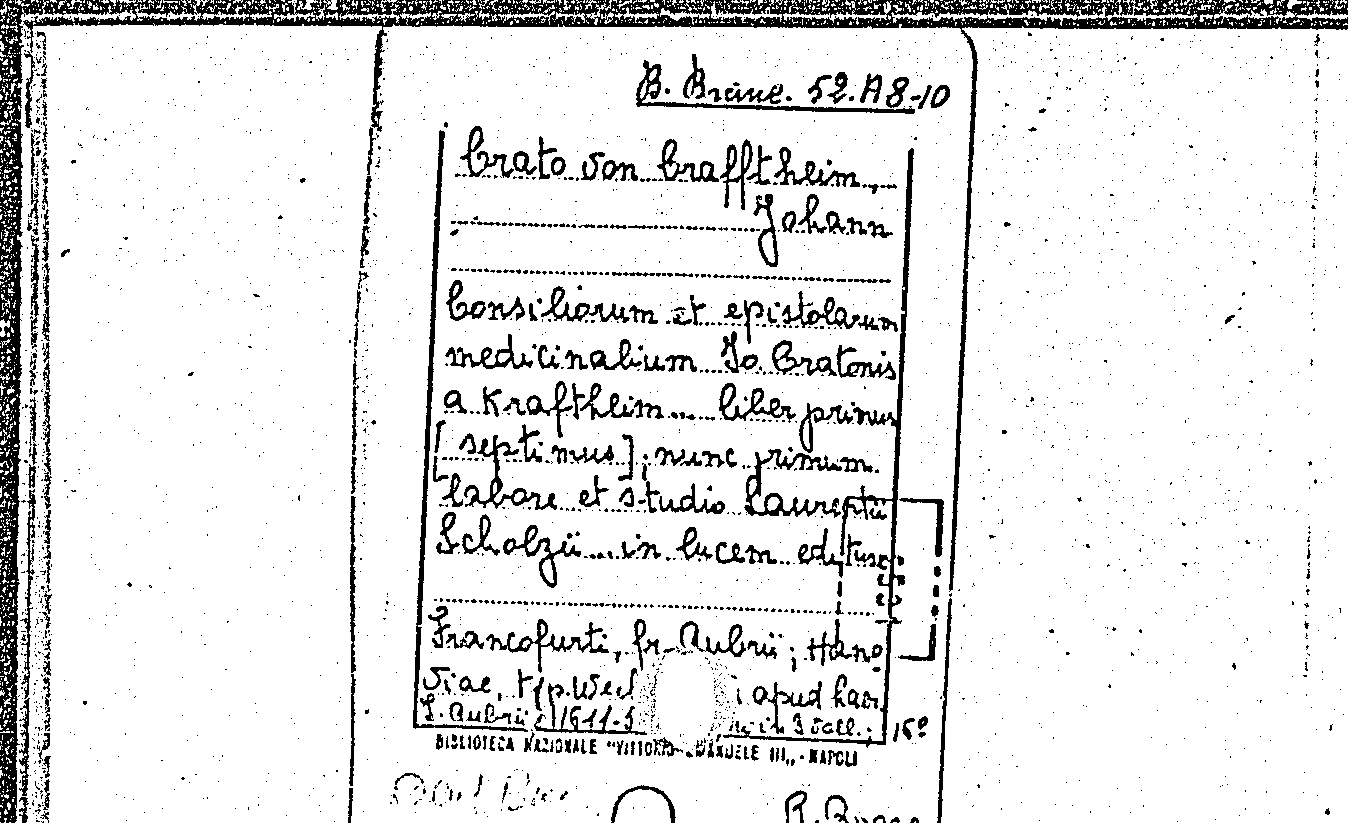 B. Branc. 52.A8-10
Crato von Crafftheim,
Johann
Consiliorum et epistolarum
medicinalium Io. Cratonis
a Kraftheim... liber primus
[septimus]; nunc primum
labore et studio Laurentii
Scholzii... in lucem editus
Francofurti, fr. Aubrii; Hano
viae, typ. Wech i apud haer.
I. Aubrii in 3 voll.; 16º
BIBLIOTECA NAZIONALE "VITTORIO EMANUELE III" - NAPOLI